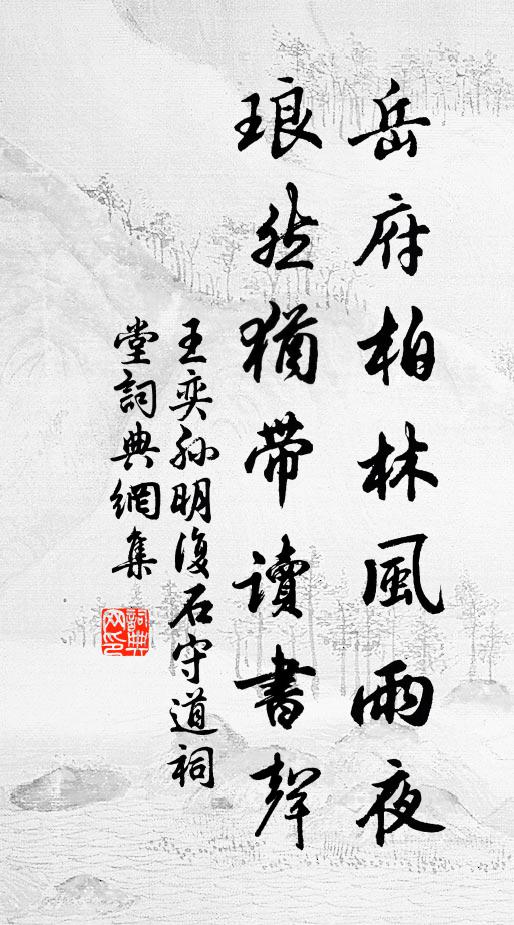 岳府柏林風雨夜
琅然猶帶讀書聲
王奕孫明復石守道祠
堂詞典網集
詞典
网印